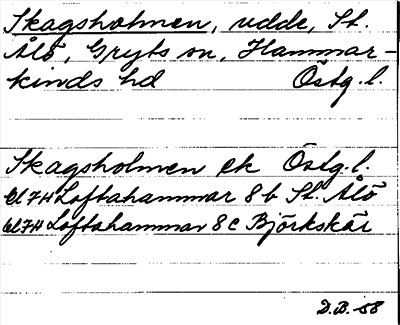 Skagsholmen, udde, St.
Ålö, Gryts sn, Hammar-
kinds hd Östg.l.
Skagsholmen ek Östg.l.
Loftahammar 8 b St. Ålö
Loftahammar 8 c Björkskär
D.B. 58